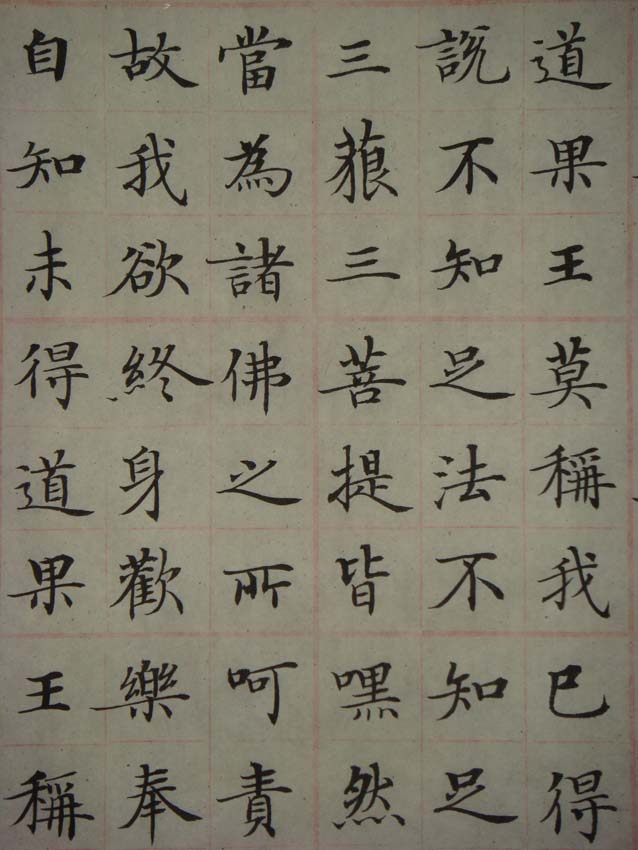 道果王莫稱我已得
說不知足法不知足
三藐三菩提皆嘿然
當為諸佛之所呵責
故我欲終身歡樂奉
自知未得道果王稱